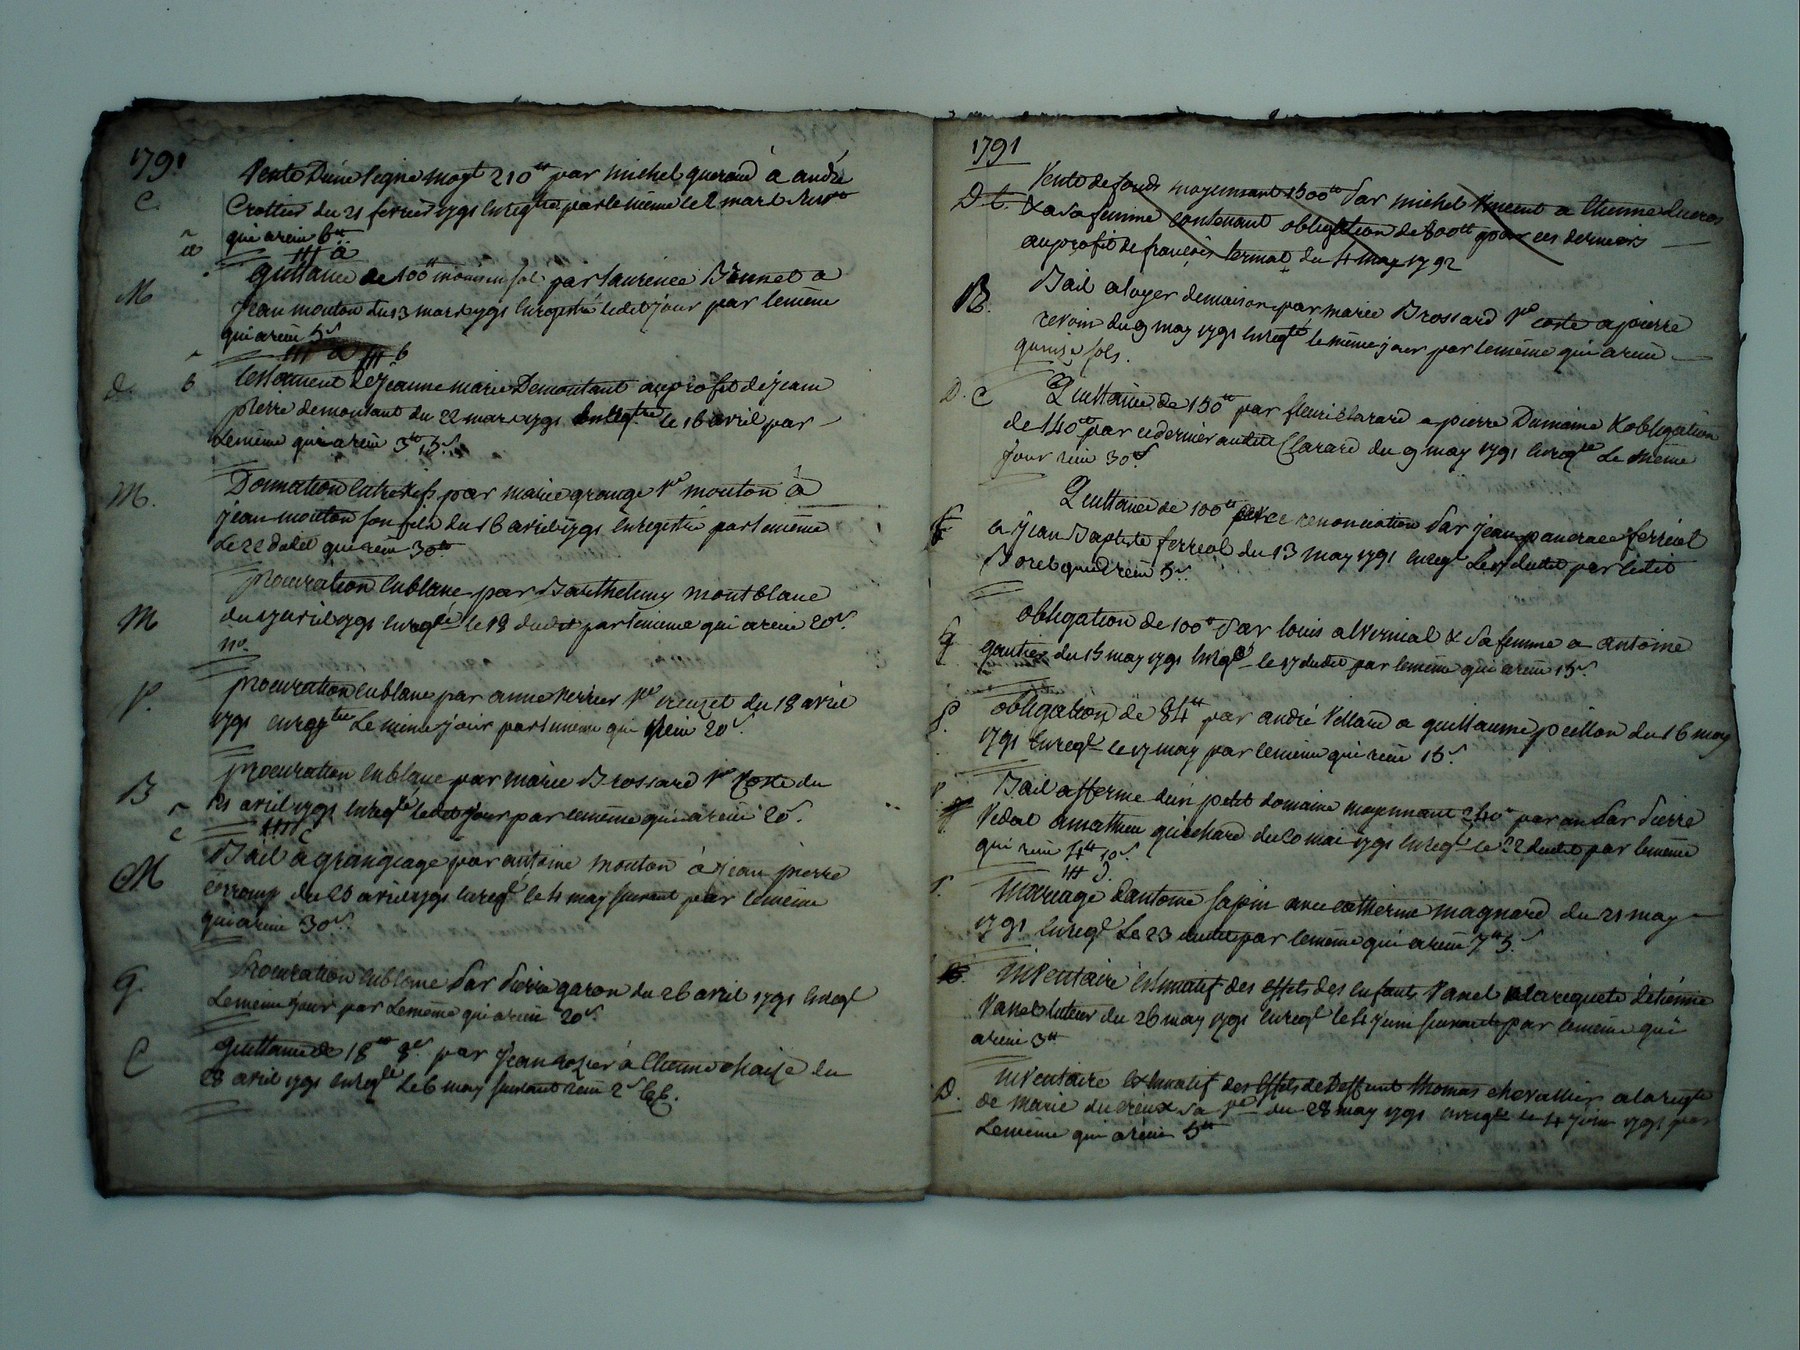 1791
Vente d'une vigne moyt 210tt par michel queraud à andré
C. Crottier du 21 fevrier 1791 enregtré par le même le 2 mars
qui a reçu 6tt
quittance de 100tt par laurence Bonnet a
M jean mouton du 13 mars 1791 enregistré ledit jour par le même
qui a reçu 5s
d. b testament de jeanne marie Demontant au profit de jean
pierre demontant du 22 mars 1791 enregtré le 16 avril par
le même qui a reçu 3tt 15s
M. Donnation entre vifs par marie grange ve mouton à
jean mouton son fils du 16 avril 1791 enregistré par le même
le 22 dudit qui a reçu 30tt
procuration en blanc par Barthelemy montblanc
M du 17 avril 1791 enregé le 18 dudit par le même qui a reçu 20s
procuration en blanc par anne verrier ve creuzet du 18 avril
P. 1791 enregtré le même jour par le même qui a reçu 20s
procuration en blanc par marie Brossard ve Coste du
B 21 avril 1791 enregé ledit jour par le même qui a reçu 20s
Bail a grangeage par antoine mouton à jean pierre
M du 26 avril 1791 enregé le 4 may suivant par le même
qui a reçu 30s
g. Procuration en blanc par Pierre garon du 26 avril 1791 enregé
le même jour par le même qui a reçu 20s
C quittance de 18tt 8s par jean rozier à Etienne chaize du
28 avril 1791 enregé le 6 may suivant reçu 2s
1791
Vente de fonds moyennant 1500tt par michel Vincent a Etienne ducros
D. C. & a sa femme contenant obligation de 800tt pour ces derniers
au profit de françois termat du 4 may 1792
B. Bail a loyer de maison par marie Brossard ve coste a pierre
revoin du 9 may 1791 enregé le même jour par le même qui a reçu
quinze sols.
D. C Quittance de 150tt par fleuri Clarard a pierre Dumaine & obligation
de 140tt par ce dernier audit Clarard du 9 may 1791 enregé le même
jour reçu 30s
Quittance de 100tt avec renonciation par jean pancrace ferréol
a jean Baptiste ferréol du 13 may 1791 enregé le 17 dudit par ledit
Borel qui a reçu 5s
obligation de 100tt par louis alvernial & sa femme a antoine
G gautier du 15 may 1791 enregé le 17 dudit par le même qui a reçu 15s
P. obligation de 84tt par andré Villard a guillaume peillon du 16 may
1791 enregé le 17 may par le même qui reçu 15s
Bail a fferme d'un petit domaine moyennant 240tt par an par Pierre
Vidal a mathieu guichard du 20 mai 1791 enregé le 22 dudit par le même
qui reçu 4tt 10s
S. Mariage d'antoine sapin avec catherine magnard du 21 may
1791 enregé le 23 dudit par le même qui a reçu 7tt 5s
inventaire estimatif des effets des enfants Vanel a la requete d'étienne
Vanel tuteur du 26 may 1791 enregé le 4 juin suivant par le même qui
a reçu 3tt
D. inventaire estimatif des effets de deffunt thomas chevallier a la reqte
de marie ducreux sa ve du 28 may 1791 enregé le 4 juin 1791 par
le même qui a reçu 5tt